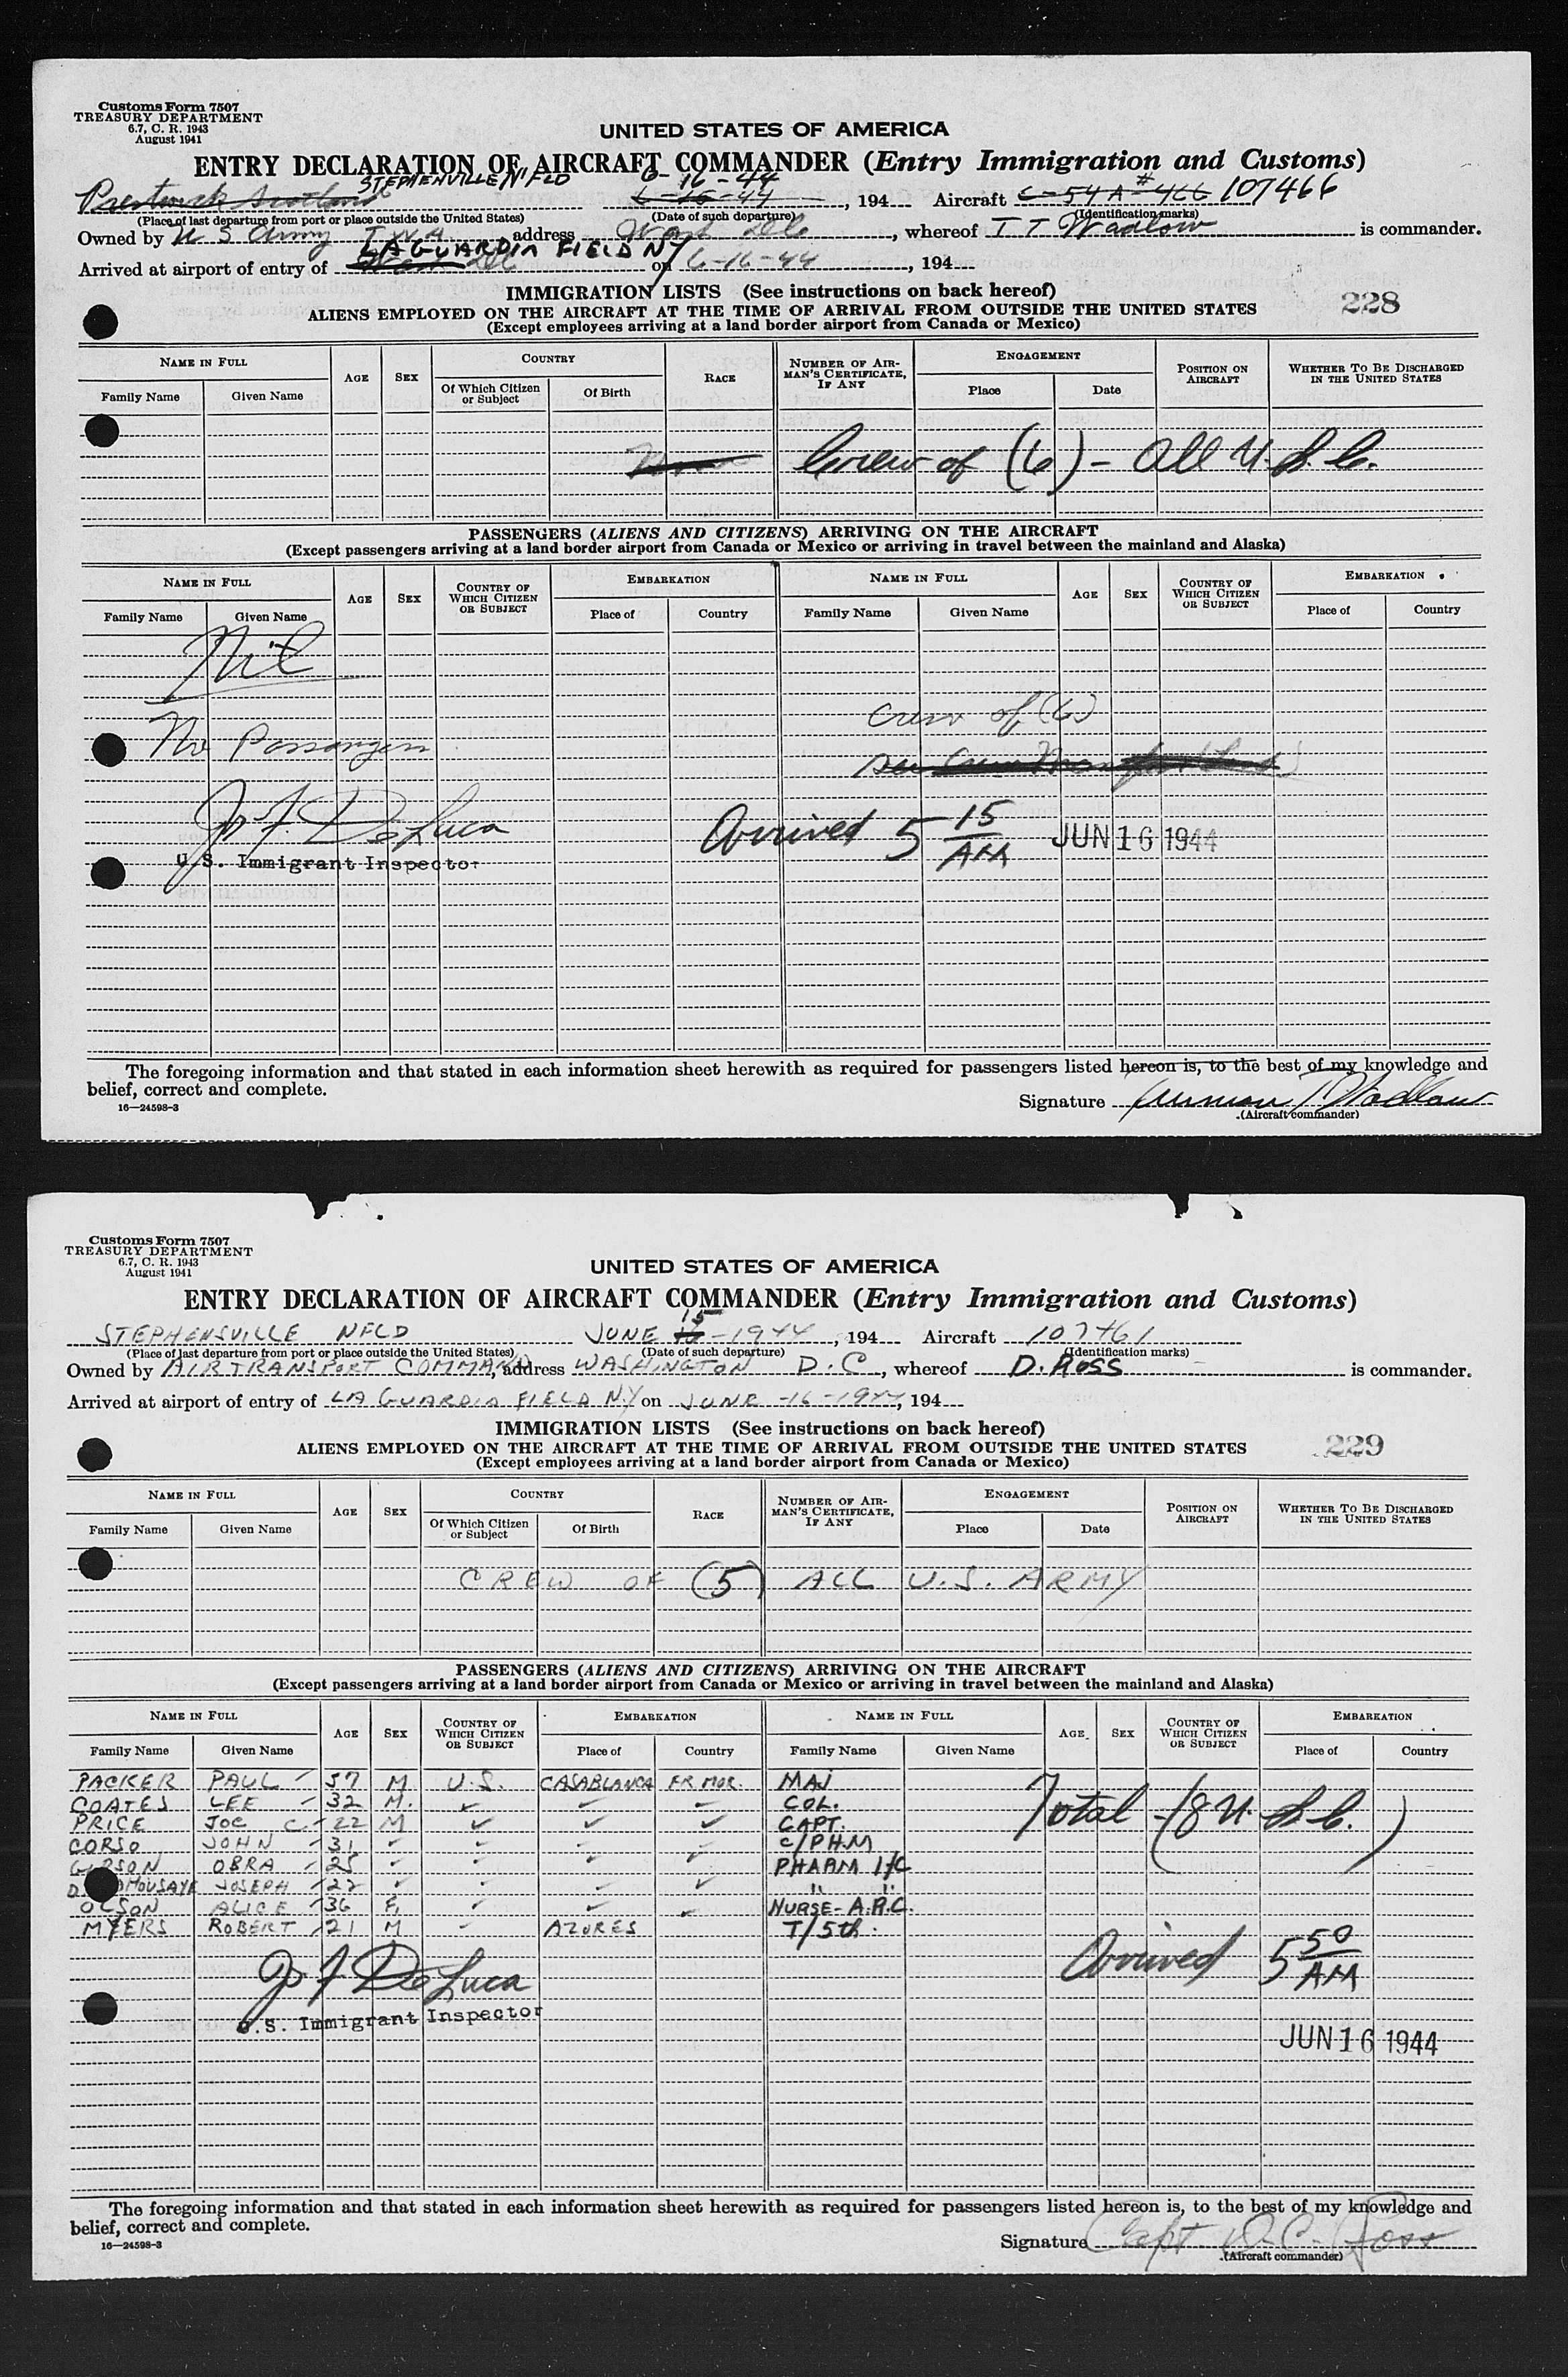 Customs Form 7507
TREASURY DEPARTMENT
6.7, C. R. 1943
August 1941
UNITED STATES OF AMERICA
ENTRY DECLARATION OF AIRCRAFT COMMANDER (Entry Immigration and Customs)
Prestwick Scotland STEPHENVILLE N'FLD 6-16-44 6-16-44, 194 Aircraft C-54A #466 107466
(Place of last departure from port or place outside the United States) (Date of such departure) (Identification marks)
Owned by U S Army TWA address Wash, whereof T T Wadlow is commander.
LA GUARDIA FIELD NY
Arrived at airport of entry of on 6-16-44, 194
IMMIGRATION LISTS (See instructions on back hereof)
228
ALIENS EMPLOYED ON THE AIRCRAFT AT THE TIME OF ARRIVAL FROM OUTSIDE THE UNITED STATES
(Except employees arriving at a land border airport from Canada or Mexico)
NAME IN FULL AGE SEX COUNTRY RACE NUMBER OF AIRMAN'S CERTIFICATE, IF ANY ENGAGEMENT POSITION ON AIRCRAFT WHETHER TO BE DISCHARGED IN THE UNITED STATES
Family Name Given Name Of Which Citizen or Subject Of Birth Place Date
Crew of (6) - All U.S.C.
PASSENGERS (ALIENS AND CITIZENS) ARRIVING ON THE AIRCRAFT
(Except passengers arriving at a land border airport from Canada or Mexico or arriving in travel between the mainland and Alaska)
NAME IN FULL AGE SEX COUNTRY OF WHICH CITIZEN OR SUBJECT EMBARKATION NAME IN FULL AGE SEX COUNTRY OF WHICH CITIZEN OR SUBJECT EMBARKATION
Family Name Given Name Place of Country Family Name Given Name Place of Country
Nil
Crew of (6)
No Passengers
Jos F. DeLuca
U.S. Immigrant Inspector
Arrived 5 15 AM JUN 16 1944
The foregoing information and that stated in each information sheet herewith as required for passengers listed hereon is, to the best of my knowledge and
belief, correct and complete.
16—24598-3
Signature Truman T Wadlow
(Aircraft commander)
Customs Form 7507
TREASURY DEPARTMENT
6.7, C. R. 1943
August 1941
UNITED STATES OF AMERICA
ENTRY DECLARATION OF AIRCRAFT COMMANDER (Entry Immigration and Customs)
STEPHENSVILLE NFLD JUNE 15 -1944, 194 Aircraft 107461
(Place of last departure from port or place outside the United States) (Date of such departure) (Identification marks)
Owned by AIR TRANSPORT COMMAND, address WASHINGTON D.C, whereof D. ROSS is commander.
Arrived at airport of entry of LA GUARDIA FIELD N.Y on JUNE -16-1944, 194
IMMIGRATION LISTS (See instructions on back hereof)
229
ALIENS EMPLOYED ON THE AIRCRAFT AT THE TIME OF ARRIVAL FROM OUTSIDE THE UNITED STATES
(Except employees arriving at a land border airport from Canada or Mexico)
NAME IN FULL AGE SEX COUNTRY RACE NUMBER OF AIRMAN'S CERTIFICATE, IF ANY ENGAGEMENT POSITION ON AIRCRAFT WHETHER TO BE DISCHARGED IN THE UNITED STATES
Family Name Given Name Of Which Citizen or Subject Of Birth Place Date
CREW OF (5) ALL U.S. ARMY
PASSENGERS (ALIENS AND CITIZENS) ARRIVING ON THE AIRCRAFT
(Except passengers arriving at a land border airport from Canada or Mexico or arriving in travel between the mainland and Alaska)
NAME IN FULL AGE SEX COUNTRY OF WHICH CITIZEN OR SUBJECT EMBARKATION NAME IN FULL AGE SEX COUNTRY OF WHICH CITIZEN OR SUBJECT EMBARKATION
Family Name Given Name Place of Country Family Name Given Name Place of Country
PACKER PAUL 37 M U.S. CASABLANCA FR MOR. MAJ
COATES LEE 32 M. ✓ ✓ ✓ COL.
PRICE JOE C 22 M ✓ ✓ ✓ CAPT.
Total (8 U.S.C.)
CORSO JOHN 31 ✓ ✓ ✓ ✓ C/PHM
OBRA 25 ✓ ✓ ✓ ✓ PHARM 1/C
JOSEPH 22 ✓ ✓ ✓ ✓ " "
OLSON ALICE 36 F. ✓ ✓ ✓ NURSE-A.R.C.
MYERS ROBERT 21 M ✓ AZORES T/5th.
Jos F DeLuca
U.S. Immigrant Inspector
Arrived 5 50 AM
JUN 16 1944
The foregoing information and that stated in each information sheet herewith as required for passengers listed hereon is, to the best of my knowledge and
belief, correct and complete.
16—24598-3
Signature Capt. D. C. Ross
(Aircraft commander)